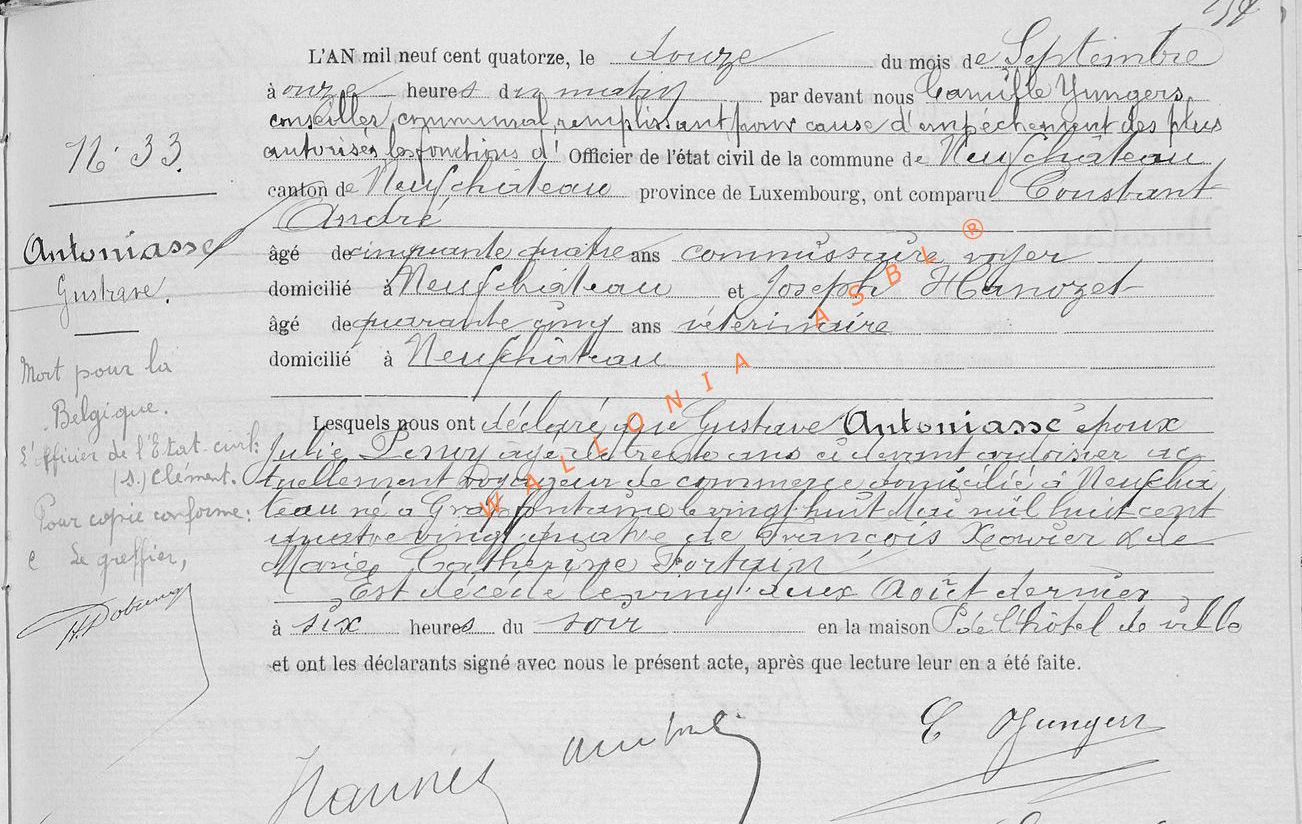 L'AN mil neuf cent quatorze, le douze du mois de Septembre
à onze heures du matin par devant nous Camille Yungers
conseiller communal, remplissant pour cause d'empêchement des plus
autorisés les fonctions d' Officier de l'état civil de la commune de Neufchâteau
canton de Neufchâteau province de Luxembourg, ont comparu Constant
André
âgé de cinquante quatre ans commissaire voyer
domicilié à Neufchâteau et Joseph Hanozet
âgé de quarante cinq ans vétérinaire
domicilié à Neufchâteau
Lesquels nous ont déclaré que Gustave Antoniasse époux
Julie agé de trente ans ci devant ardoisier ac
tuellement voyageur de commerce domicilié à Neufchâ
teau né à Grapfontaine le vingt huit Mai mil huit cent
quatre vingt quatre de François Xavier & de
Marie Catherine
Est décédé le vingt deux Août dernier
à six heures du soir en la maison de l'hôtel de ville
et ont les déclarants signé avec nous le présent acte, après que lecture leur en a été faite.
C Yungers
N° 33.
Antoniasse
Gustave.
Mort pour la
Belgique.
L'officier de l'Etat-civil:
(s.) Clément.
Pour copie conforme:
Le greffier,
WALLONIA ASBL ®